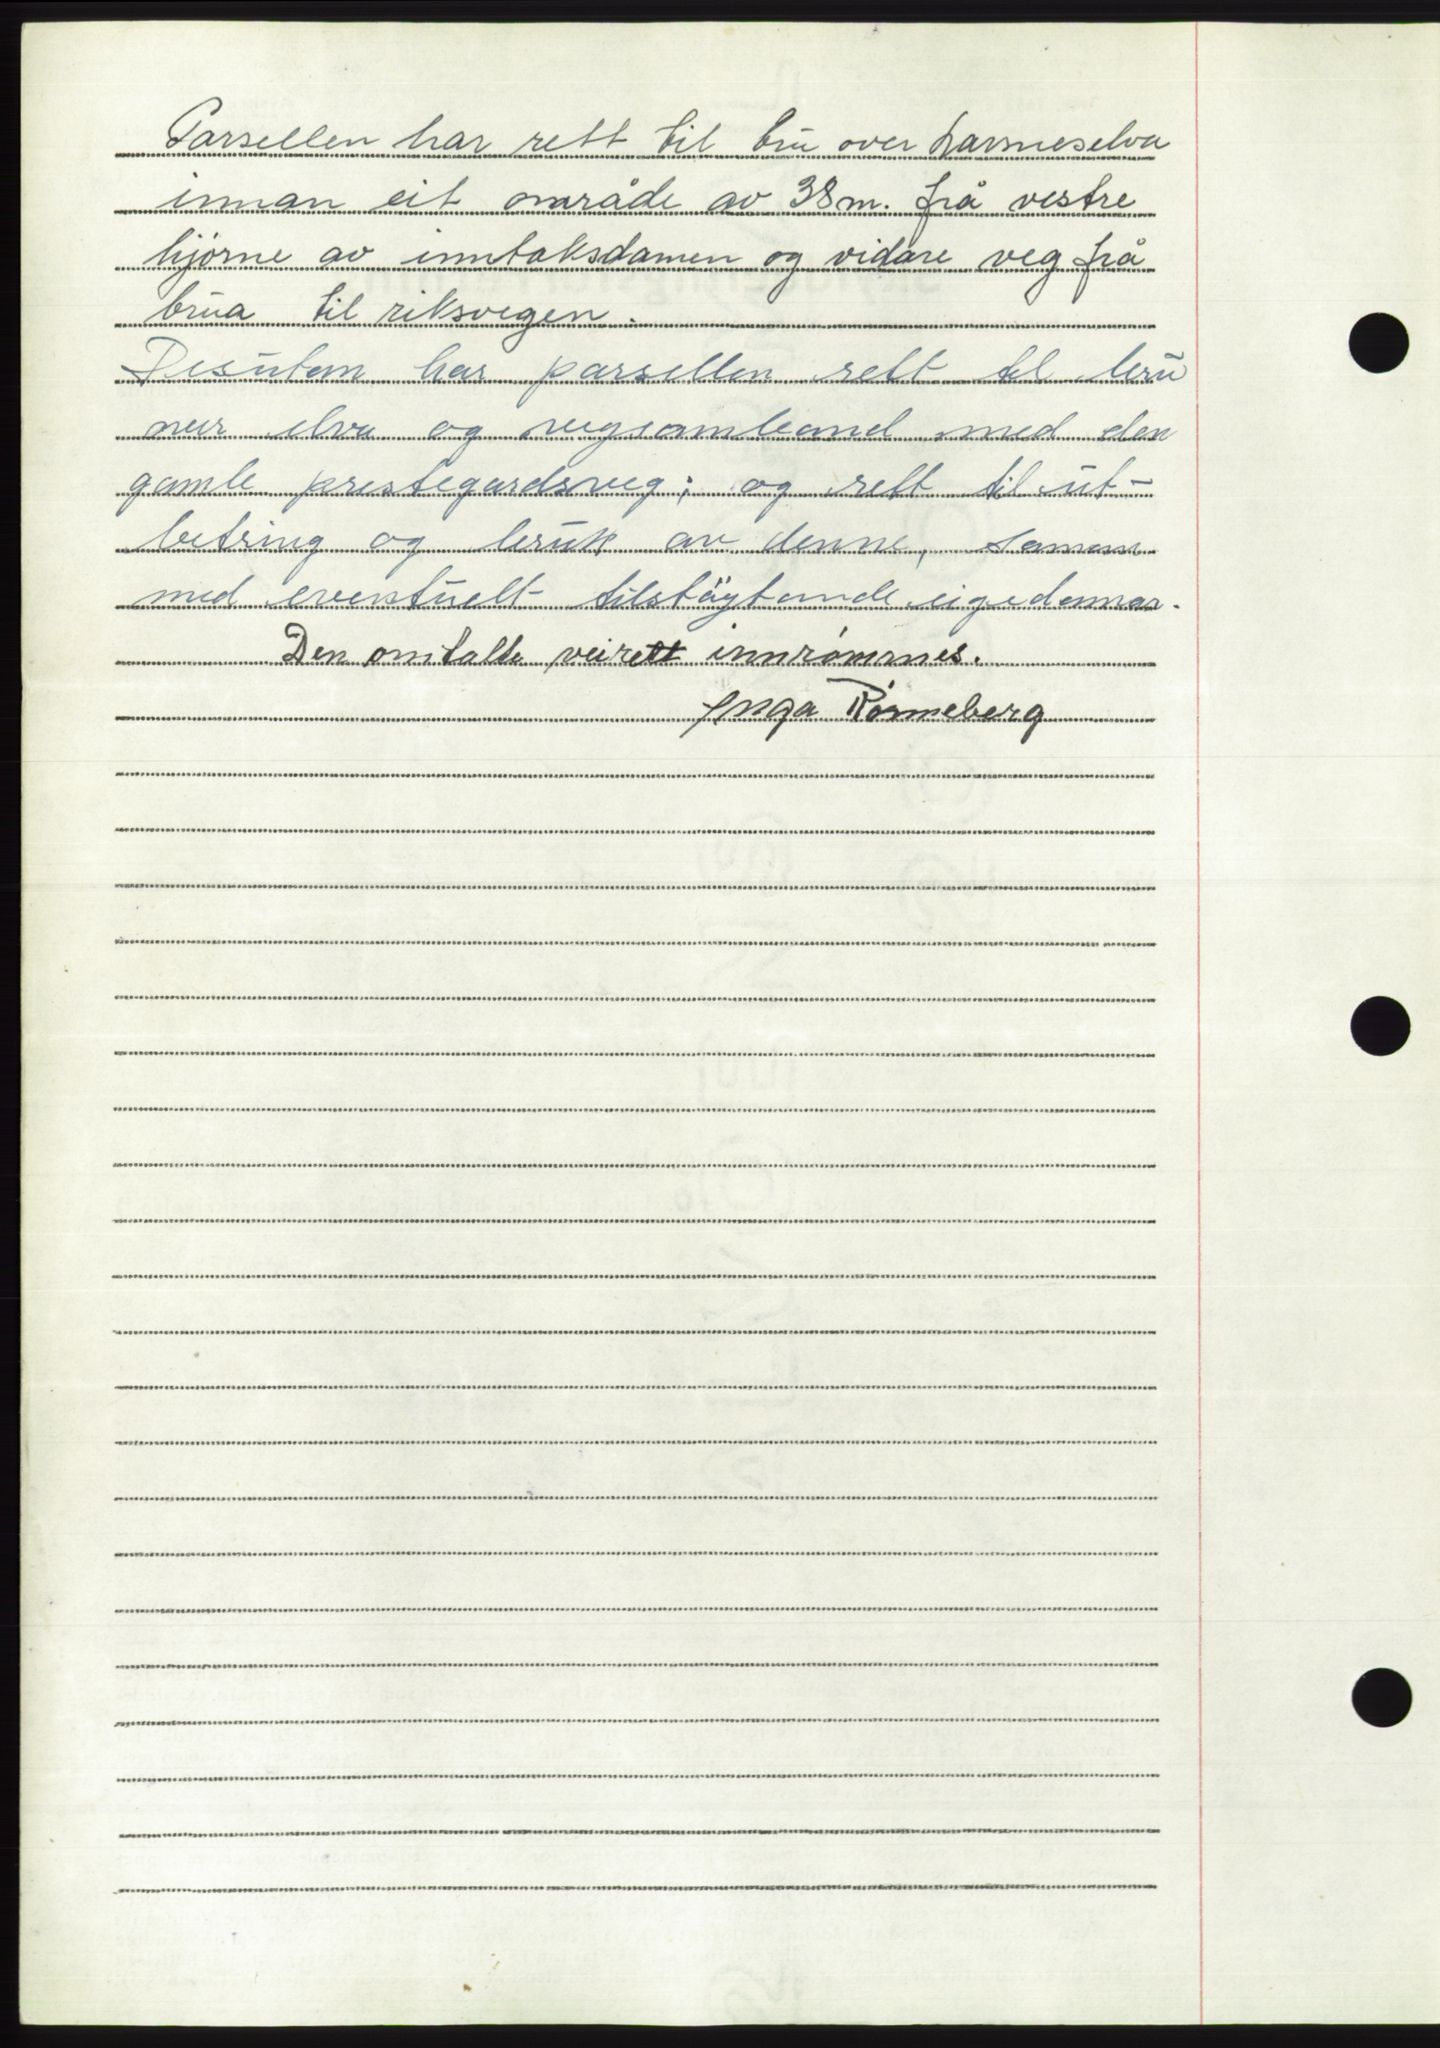 Parsellen har rett til bru over Larsneselva
innan eit område av 38 m. frå vestre
hjørne av inntaksdamen og vidare veg frå
brua til riksvegen.
Desutan har parsellen rett til bru
over elva og vegsamband med den
gamle prestegardsveg; og rett til ut-
betring og bruk av denne, saman
med eventuelt tilstøytande eigedomar.
Den omtalte veirett innrømmes.
Inga Rønneberg